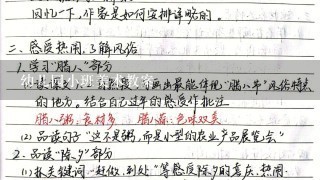 回忆一下,作家是如何安排详略的。
二、感受热闹,了解风俗
1.学习“腊八”部分
画出最能体现“腊八节”风俗特点
的地方。结合自己过年的感受作批注
腊八粥:食材多 腊八蒜:色味双美
(2)品读句子“这不是粥,而是小型的农业产品展览会”
2.品读“除夕”部分
(1)抓关键词“赶做、到处”等感受除夕的喜庆、热闹
幼儿园小班美术教案